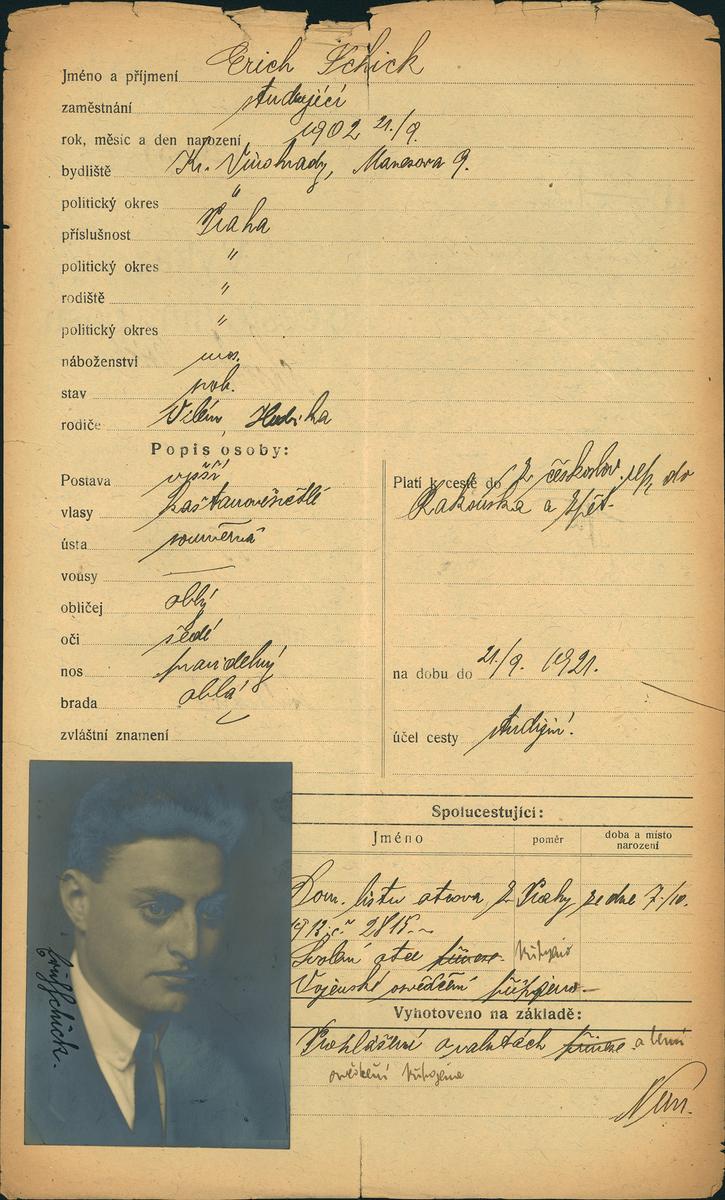 Jméno a příjmení Erich Schick
zaměstnání studující
rok, měsíc a den narození 1902 21./9.
bydliště Kr. Vinohrady, Manesova 9.
politický okres "
příslušnost Praha
politický okres "
rodiště "
politický okres "
náboženství mos.
stav svob.
rodiče Vilém
Popis osoby:
Postava vyšší
vlasy kaštanověšedé
ústa souměrná
vousy —
obličej oblý
oči šedé
nos pravidelný
brada oblá
zvláštní znamení
Platí k cestě do Z českoslov. rep. do
Rakouska a zpět.
na dobu do 21./9. 1921.
účel cesty studijní.
Spolucestující:
Jméno poměr doba a místo narození
Dom. listu otcova z Prahy ze dne 7./10.
1912 č 2815.
Svolení otce přinese připojeno
Vojenské osvědčení připojeno
Vyhotoveno na základě:
Prohlášení o valutách přinese a
připojeno
Schick.